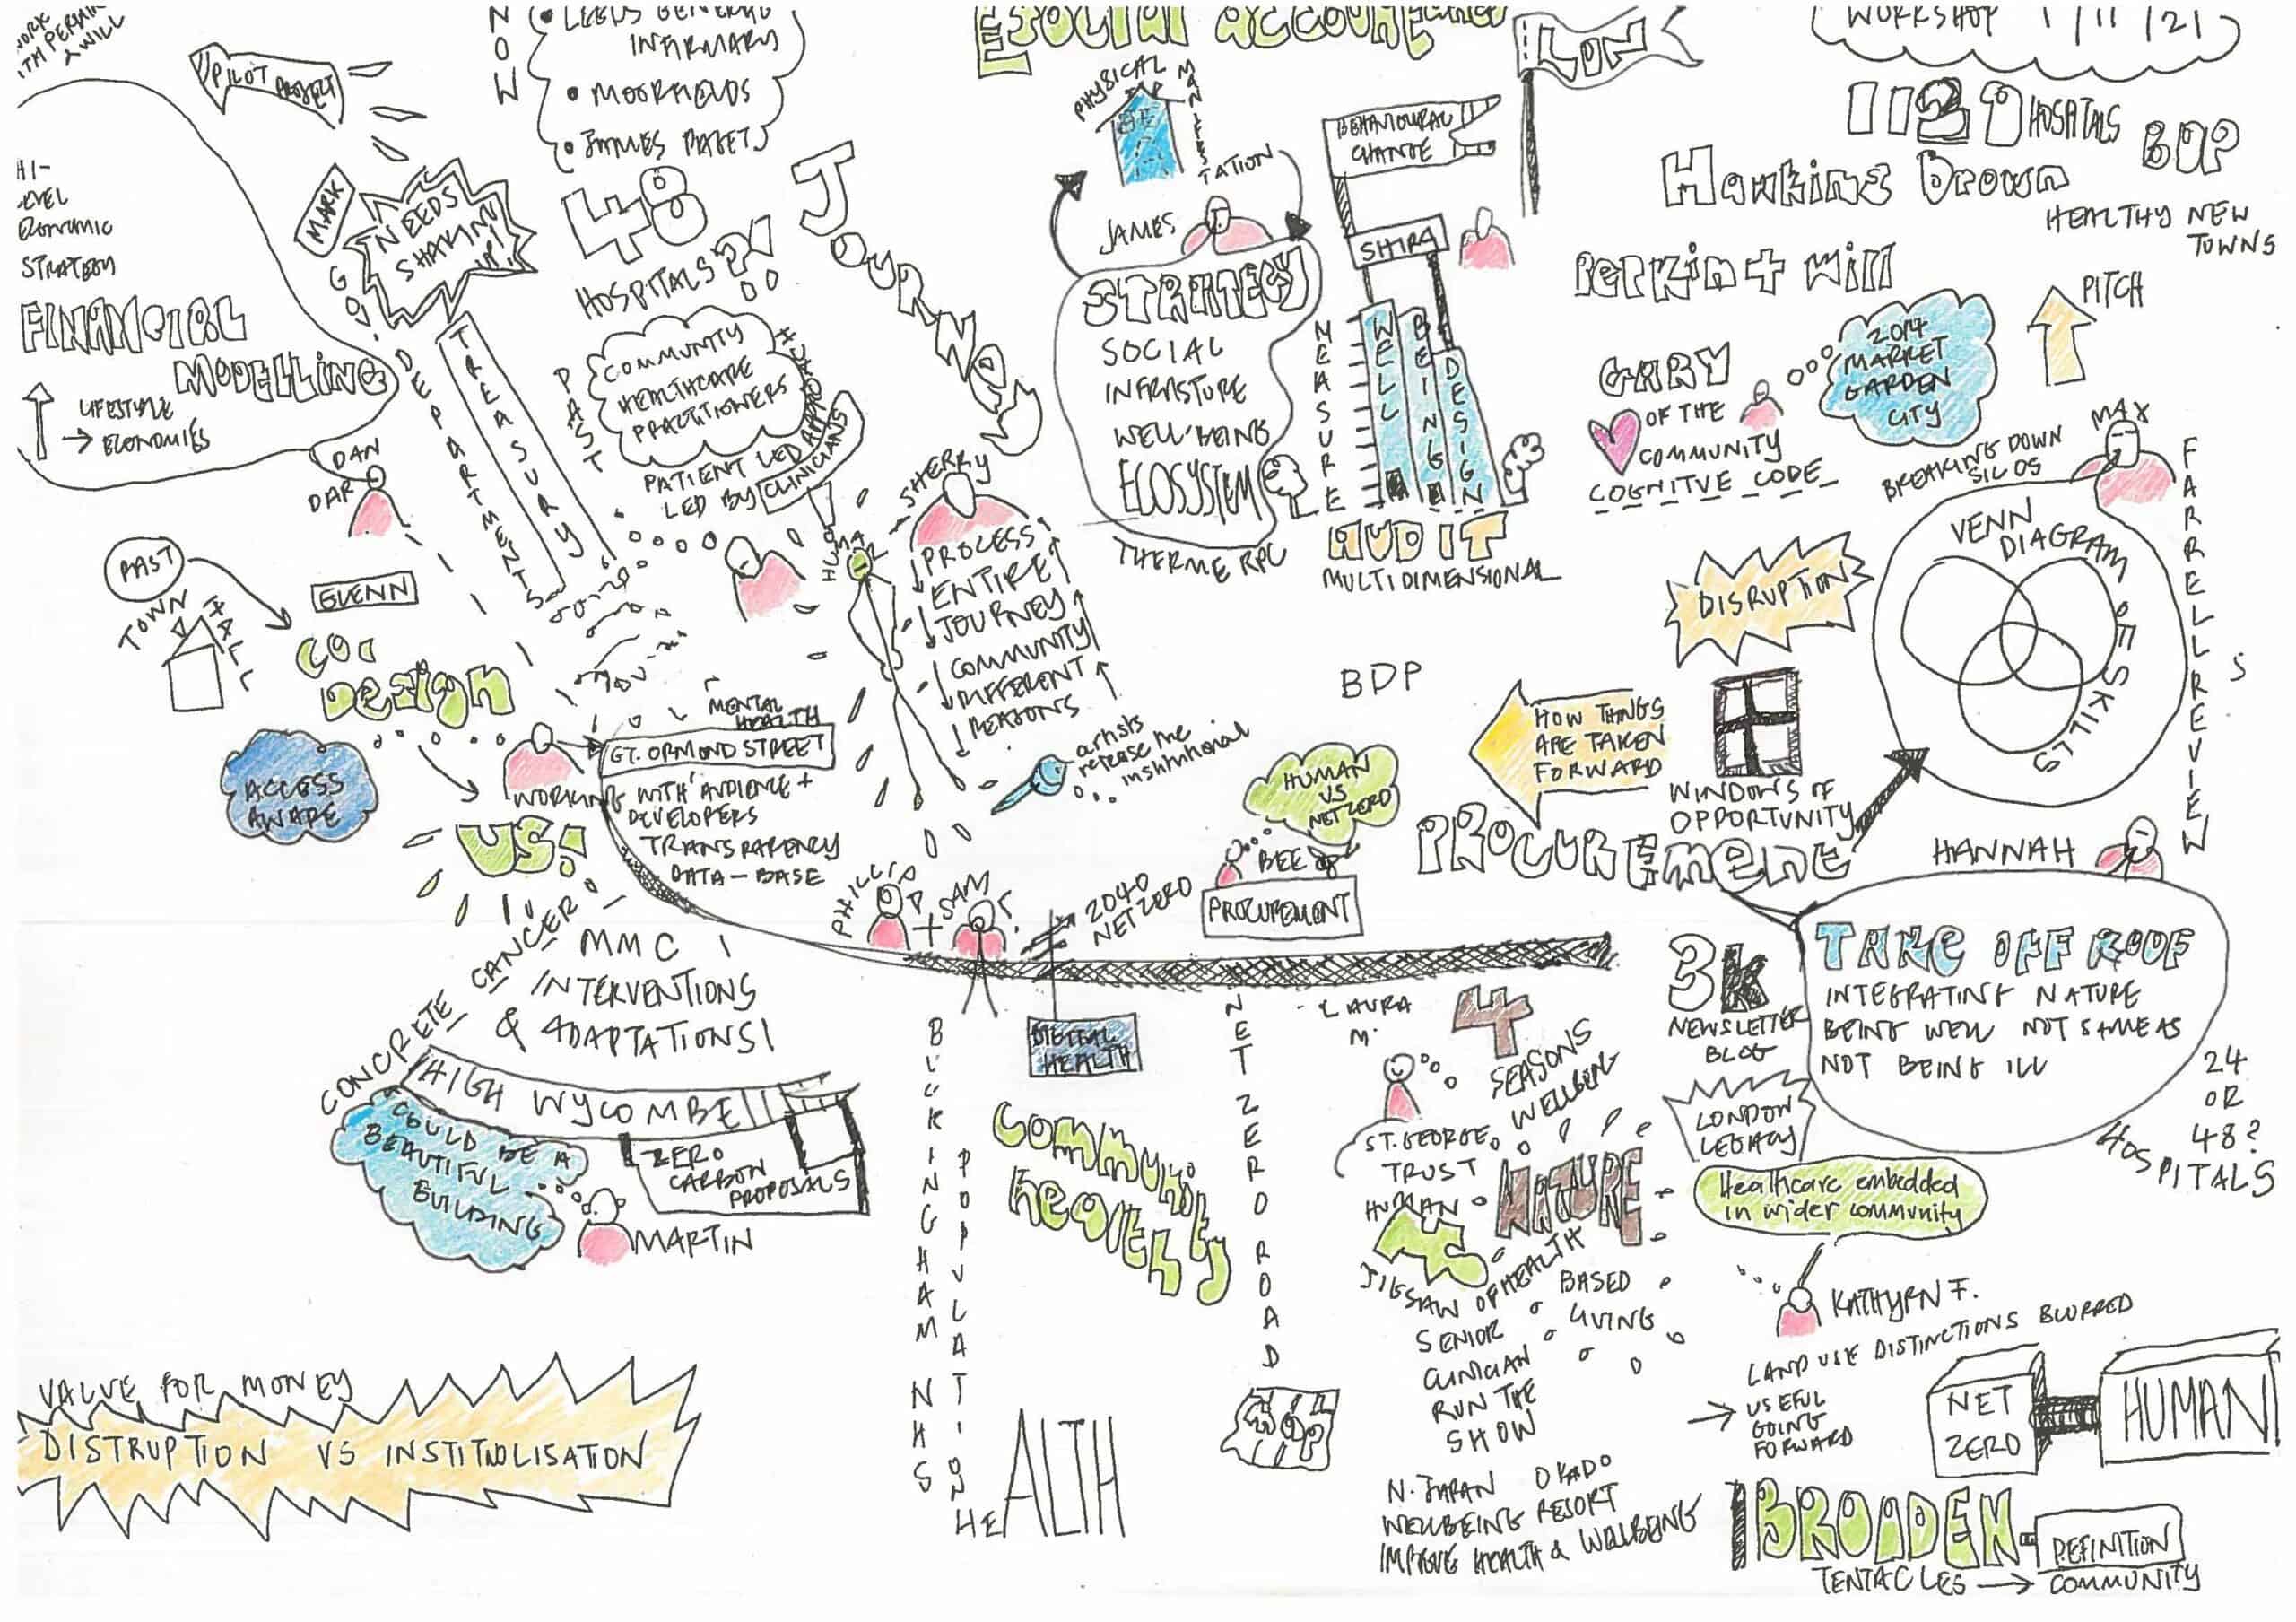 & WILL
PILOT PROJECT
NOW
LEEDS GENERAL
INFIRMARY
MOORFIELDS
48
HOSPITALS?!
JOURNEY
MARK
NEEDS
SHAKING
UP!
GOV.
DEPARTMENT
TREASURY
ECONOMIC
STRATEGY
FINANCIAL
MODELLING
LIFESTYLE
ECONOMIES
DAN
DAR
PAST
COMMUNITY
HEALTHCARE
PRACTITIONERS
PATIENT LED
LED BY CLINICIANS
PAST
TOWN HALL
GLENN
CO-
DESIGN
ACCESS
AWARE
MENTAL
HEALTH
GT. ORMOND STREET
WORKING WITH AUDIENCE +
DEVELOPERS
TRANSPARENCY
DATA-BASE
US!
CONCRETE CANCER
MMC
INTERVENTIONS
& ADAPTATIONS
HIGH WYCOMBE
ZERO
CARBON
PROPOSALS
COULD BE A
BEAUTIFUL
BUILDING
MARTIN
VALUE FOR MONEY
DISTRUPTION VS INSTITNOLISATION
SHERRY
PROCESS
ENTIRE
JOURNEY
COMMUNITY
DIFFERENT
REASONS
artists
release the
institutional
PHILLIP
+ SAM
2040
NET ZERO
DIGITAL
HEALTH
BUCKINGHAM NHS
POPULATION
HEALTH
COMMUNITY
NET ZERO ROAD
MAP
PHYSICAL
MANIFESTATION
JAMES
STRATEGY
SOCIAL
INFRASTURE
WELL-BEING
ECOSYSTEM
THERME RPC
BEHAVIOURAL
CHANGE
SHIRA
MEASURE
WELL
BEING
DESIGN
AUDIT
MULTIDIMENSIONAL
LON
WORKSHOP 1/11/21
1129 HOSPITALS
BDP
Hawkins Brown
HEALTHY NEW
TOWNS
Perkin + Will
GARY
OF THE
COMMUNITY
COGNITVE CODE
2014
MARKET
GARDEN
CITY
PITCH
MAX
FARRELL REVIEW
BREAKING DOWN
SILOS
VENN
DIAGRAM
OF SKILLS
DISRUPTION
BDP
HOW THINGS
ARE TAKEN
FORWARD
WINDOWS OF
OPPORTUNITY
PROCUREMENT
HUMAN
VS
NET ZERO
BEE
PROCUREMENT
HANNAH
TAKE OFF ROOF
INTEGRATING NATURE
BEING WELL NOT SAME AS
NOT BEING ILL
3K
NEWSLETTER
BLOG
24
OR
48?
HOSPITALS
LONDON
LEGACY
Healthcare embedded
in wider community
KATHYRN F.
LAND USE DISTINCTIONS BLURRED
USEFUL
GOING
FORWARD
NET
ZERO
HUMAN
BROADEN
DEFINITION
TENTACLES → COMMUNITY
LAURA
M.
4
SEASONS
WELLBEING
ST. GEORGE
TRUST
HUMAN
NATURE
JIGSAW OF HEALTH
BASED
LIVING
SENIOR
CLINICIAN
RUN THE
SHOW
N. JAPAN OKADO
WELLBEING RESORT
IMPROVE HEALTH & WELLBEING